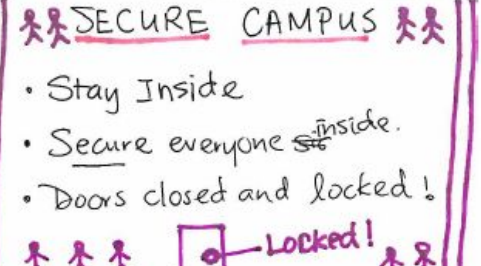 SECURE CAMPUS
• Stay Inside
• Secure everyone inside.
• Doors closed and locked!
Locked!